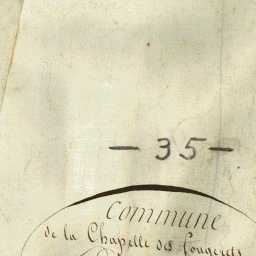 — 35 —
Commune
de la Chapelle des fougerets